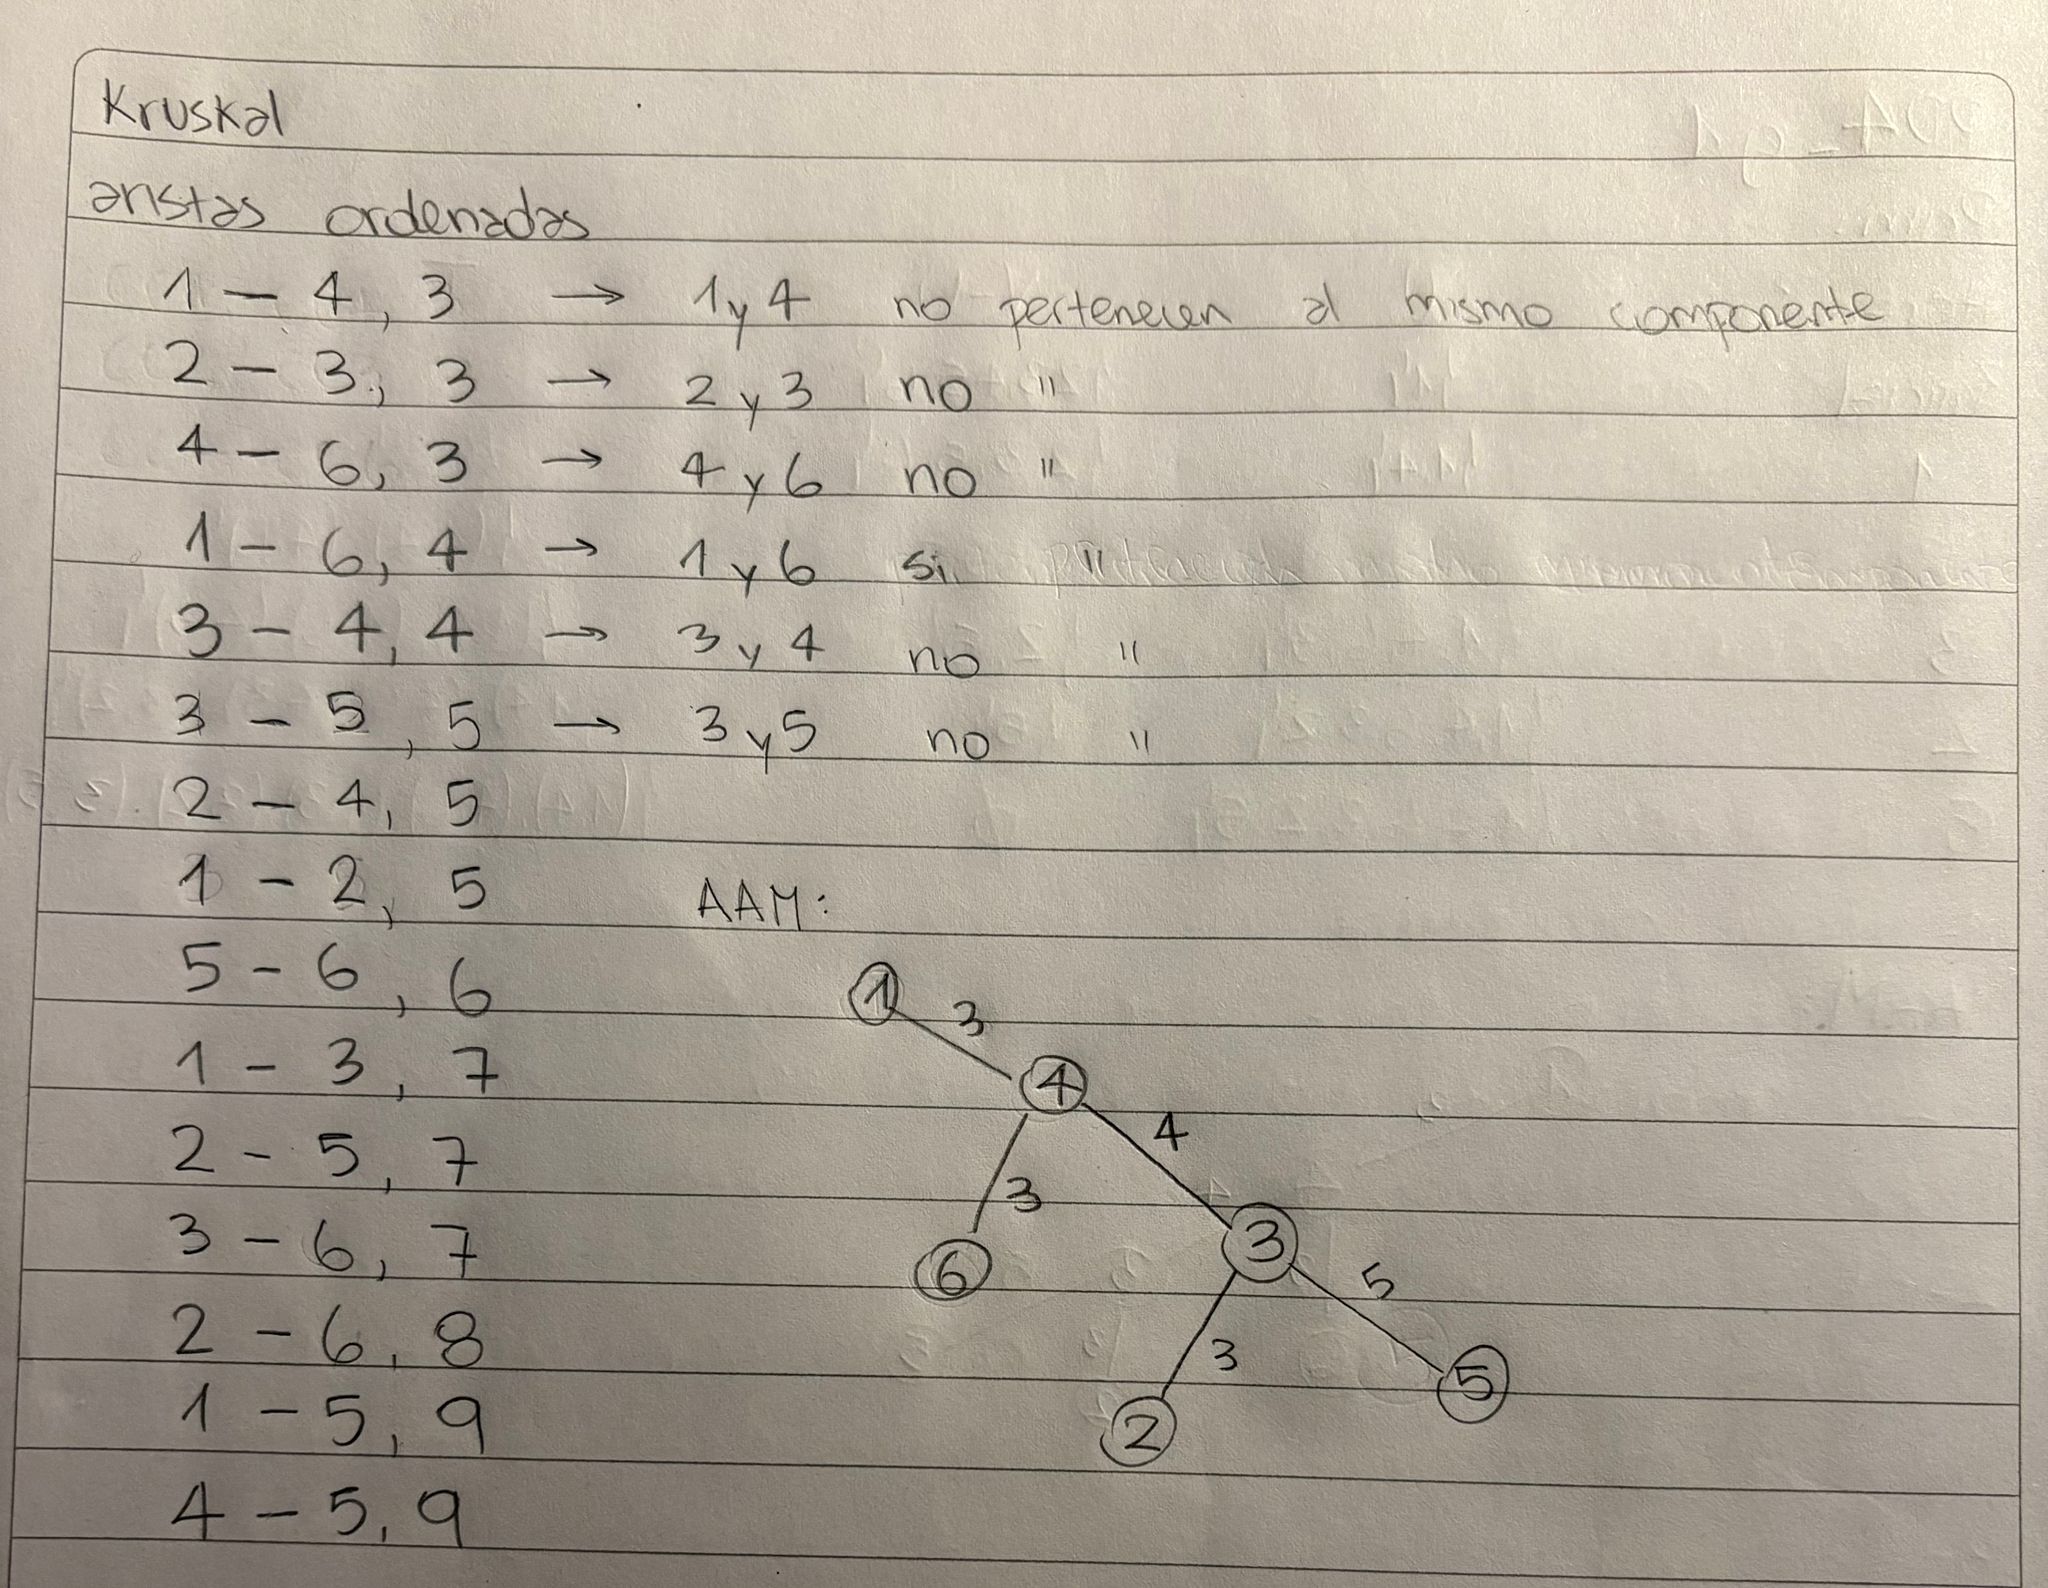 Kruskal
aristas ordenadas
1 – 4, 3 → 1 y 4 no pertenecen al mismo componente
2 – 3, 3 → 2 y 3 no "
4 – 6, 3 → 4 y 6 no "
1 – 6, 4 → 1 y 6 si "
3 – 4, 4 → 3 y 4 no "
3 – 5, 5 → 3 y 5 no "
2 – 4, 5
1 – 2, 5
AAM:
5 – 6, 6
1 – 3, 7
2 – 5, 7
3 – 6, 7
2 – 6, 8
1 – 5, 9
4 – 5, 9
1
3
4
4
3
6
3
5
3
5
2